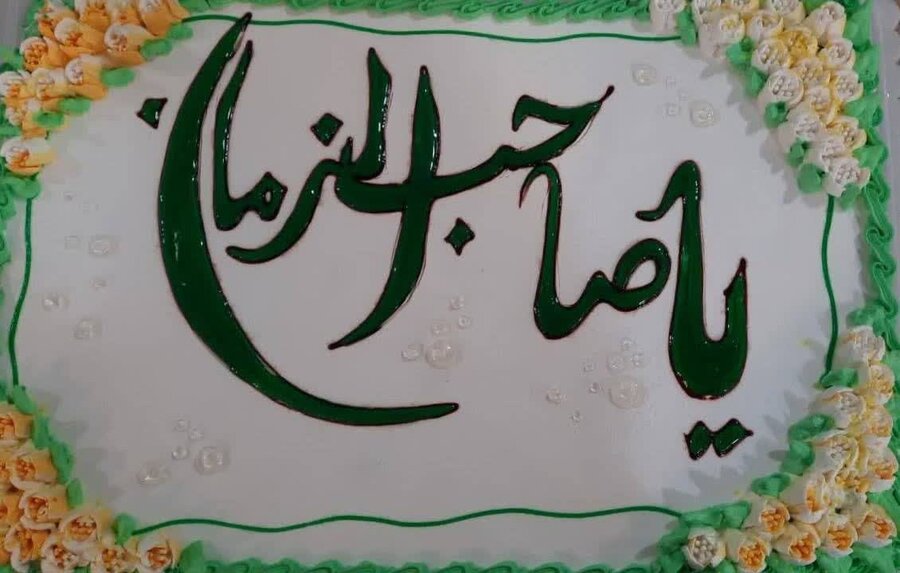 يا صاحب الزمان